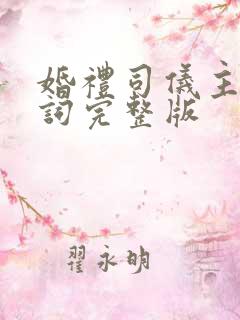 婚禮司儀主
詞完整版
翟永明